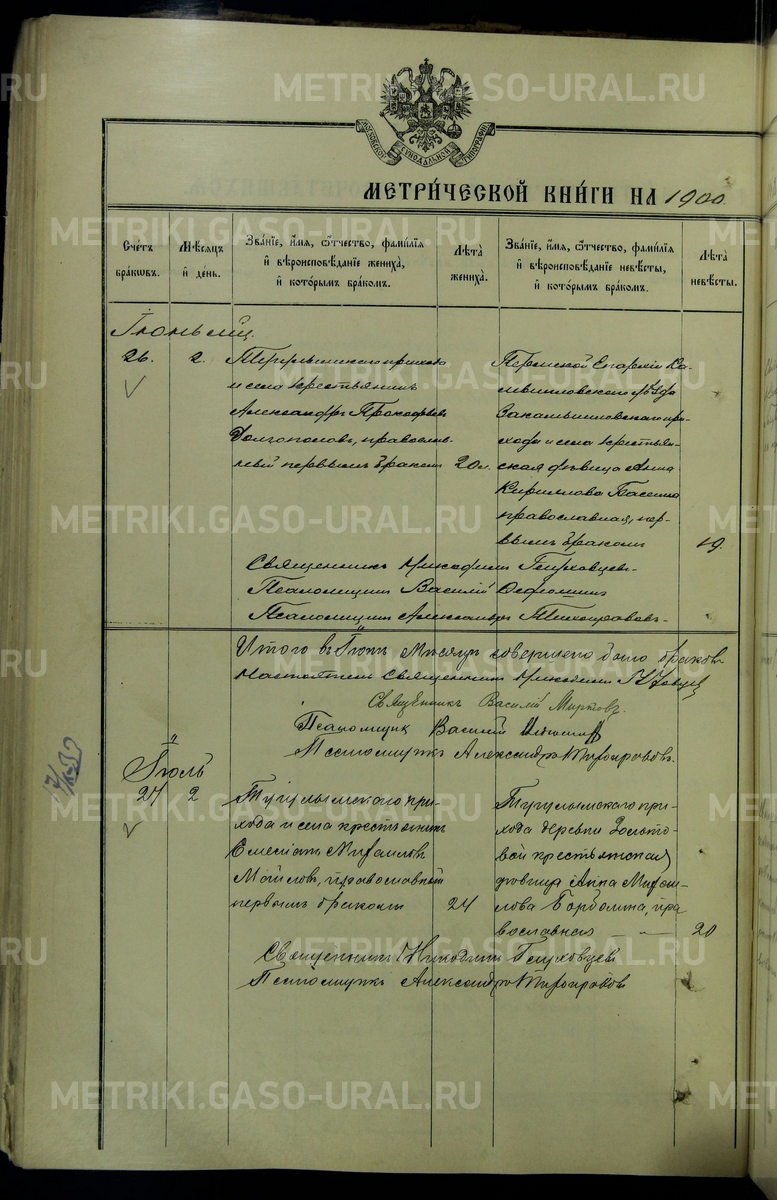 МОСКОВСКОЙ СѴНОДАЛЬНОЙ ТИПОГРАФІИ
МЕТРИ́ЧЕСКОЙ КНИ́ГИ НА 1900
Сче́тъ бра́ковъ.
Мѣ́сяцъ и҆ де́нь.
Зва́нїе, и҆́мѧ, ѻ҆́тчество, фами́лїѧ
и҆ вѣроисповѣ́данїе жениха̀,
и҆ кото́рымъ бра́комъ.
Лѣ́та жениха̀.
Зва́нїе, и҆́мѧ, ѻ҆́тчество, фами́лїѧ
и҆ вѣроисповѣ́данїе невѣ́сты,
и҆ кото́рымъ бра́комъ.
Лѣ́та невѣ́сты.
Іюнь мц.
26. 2.
Тугулымскаго прихода
и села крестьянинъ
Александръ Прокофьевъ
Долгополовъ, православ-
ный первымъ бракомъ
20 л.
Пермской Епархіи Ка-
мышловскаго уѣзда
Закамышловскаго при-
хода и села крестьян-
ская дѣвица Анна
Кириллова
православная, пер-
вымъ бракомъ
19.
Священникъ Никодимъ Глуховцевъ
Псаломщикъ Василій
Псаломщикъ Александръ Тихоправовъ
Итого въ Іюнѣ мѣсяцѣ совершено было браковъ
Настоятель Священникъ Никодимъ
Священникъ Василій Мирковъ.
Псаломщик Василій
Псаломщикъ Александръ Тихоправовъ.
Іюль
27 2
Тугулымскаго при-
хода и села крестьянинъ
Емеліанъ Михаиловъ
православный
первымъ бракомъ
24
Тугулымскаго при-
хода деревни Золото-
вой крестьянская
дѣвица Анна Михаи-
лова пра
вославная
20
Священникъ Никодимъ Глуховцевъ
Псаломщикъ Александръ Тихоправовъ
METRIKI.GASO-URAL.RU